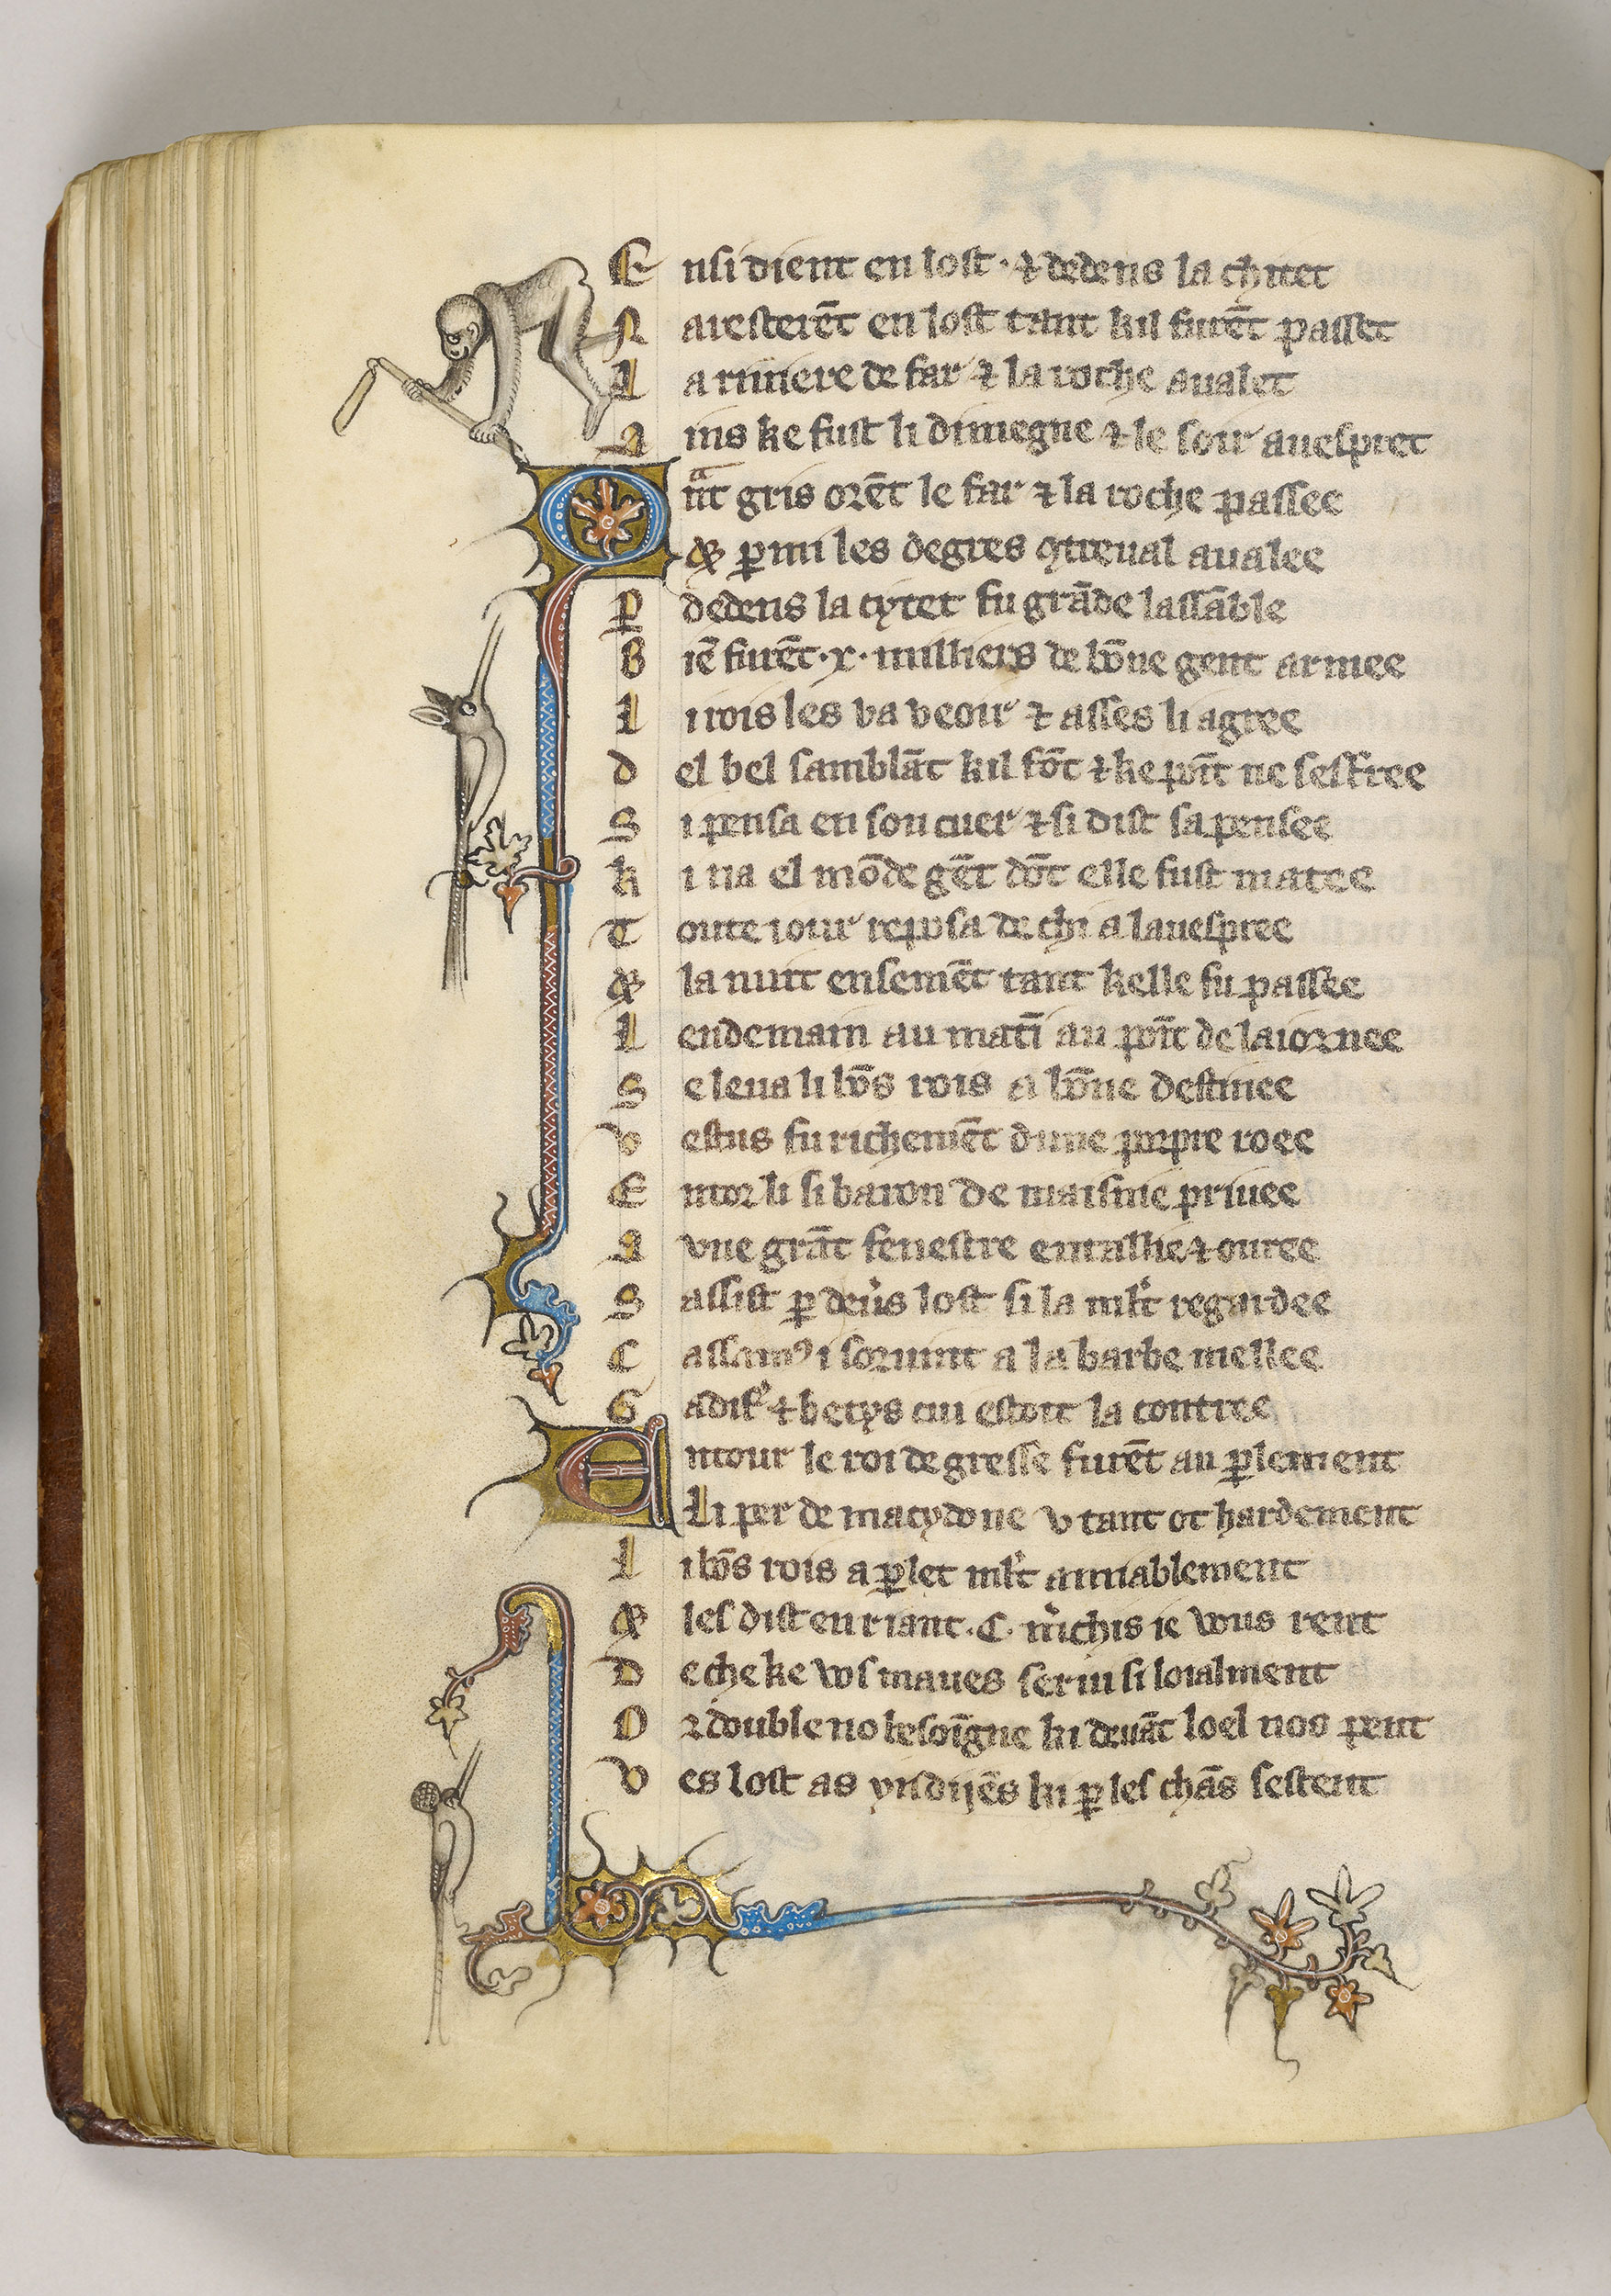 E nsi dient en lost · ⁊ dedens la chitet
N aresterēt en lost tant kil furēt passet
L a riuiere de far ⁊ la roche aualet
A ins ke fust li dimegne ⁊ le soir auespret
Q nͣt gris orēt le far ⁊ la roche passee
⁊ ꝑmi les degres ꝯtreual aualee
P dedens la cytet fu grāde lassāblee
B iē furēt · x · milliers de bōne gent armee
L i rois les va veoir ⁊ asses li agree
D el bel samblāt kil fōt ⁊ ke poīt ne seffree
S i pensa en son cuer ⁊ si dist sa pensee
K i na el mōde gēt dōt elle fust matee
T oute iour reposa de chi a lauespree
⁊ la nuit ensemēt tant kelle fu passee
L endemain au matī au poīt de laiornee
S e leua li bōs rois a bōne destinee
V estus fu richemēt dune porpre roee
E ntor li si baron de maisnie priuee
A vne grāt fenestre entallie ⁊ ouree
S assist ꝑ deuˢs lost si la ml̄t regardee
C assamꝰ i soruint a la barbe mellee
G adifˢ ⁊ betys cui estoit la contree
E ntour le roi de gresse furēt au ꝑlement
Li per de macydone v tant ot hardement
L i bōs rois a ꝑlet ml̄t amiablement
⁊ les dist en riant · C · mˢchis ie vous rent
D e che ke vos maues serui si loialment
O r double no besoīgne ki deuāt loel nos pent
V es lost as yndijēs ki ꝑ les chās sestent